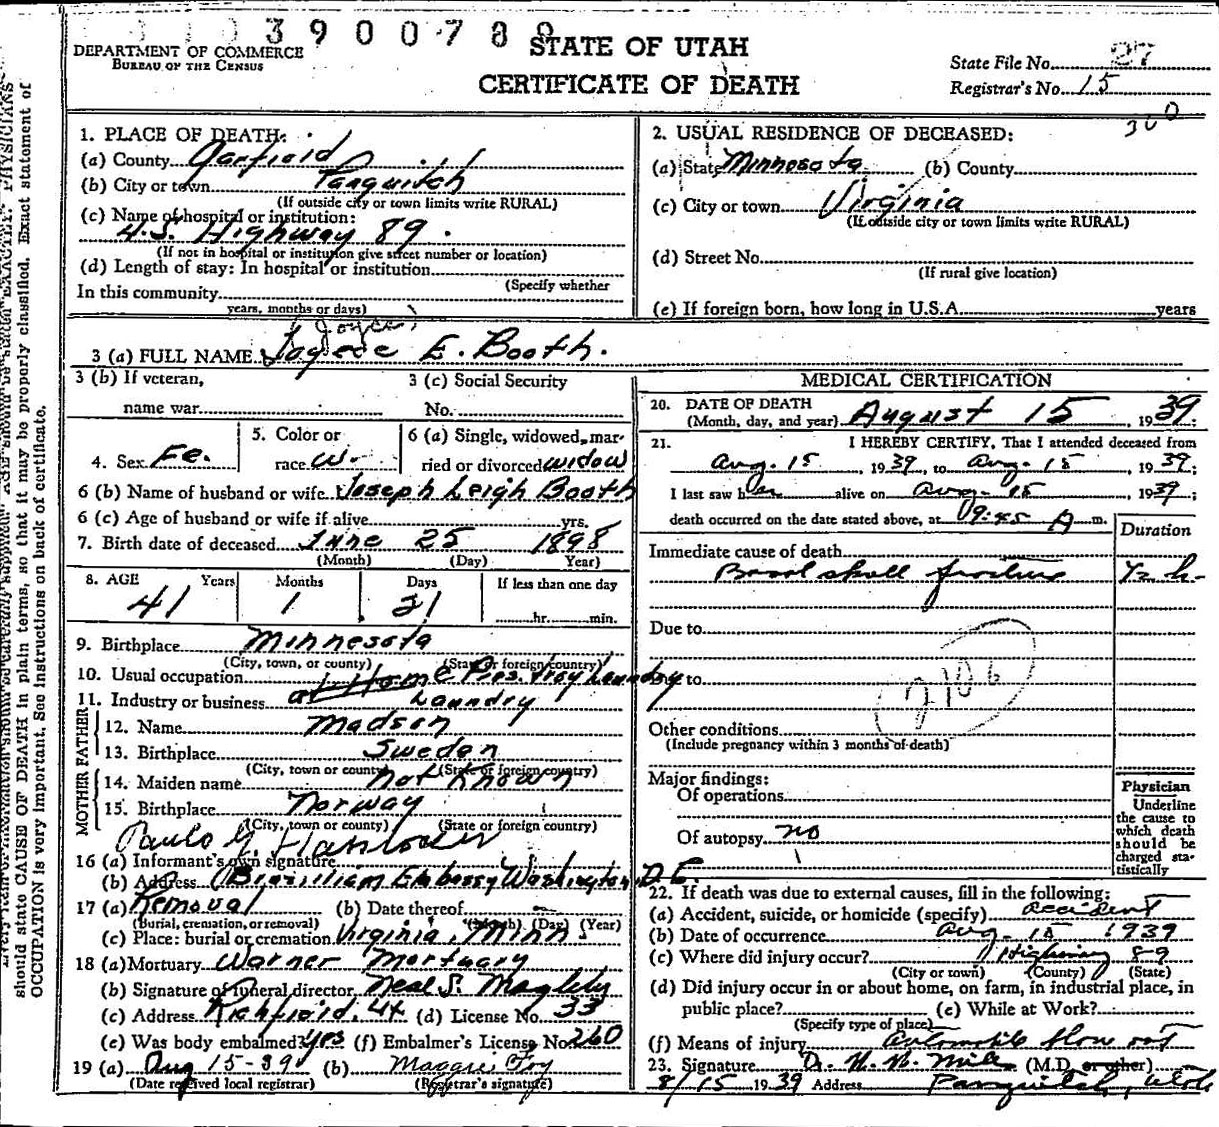 3 9 0 0 7 8
DEPARTMENT OF COMMERCE
BUREAU OF THE CENSUS
STATE OF UTAH
CERTIFICATE OF DEATH
State File No. 27
Registrar's No. 15
1. PLACE OF DEATH:
(a) County Garfield
(b) City or town Panguitch
(If outside city or town limits write RURAL)
(c) Name of hospital or institution:
U.S. Highway 89.
(If not in hospital or institution give street number or location)
(d) Length of stay: In hospital or institution
(Specify whether
In this community
years, months or days)
2. USUAL RESIDENCE OF DECEASED:
(a) State Minnesota (b) County
(c) City or town Virginia
(If outside city or town limits write RURAL)
(d) Street No.
(If rural give location)
(e) If foreign born, how long in U.S.A. years
Joyce
3 (a) FULL NAME E. Booth.
3 (b) If veteran,
name war
3 (c) Social Security
No.
4. Sex Fe.
5. Color or
race W.
6 (a) Single, widowed, mar-
ried or divorced widow
6 (b) Name of husband or wife Joseph Leigh Booth
6 (c) Age of husband or wife if alive yrs.
7. Birth date of deceased June 25 1898
(Month) (Day) Year)
8. AGE Years Months Days If less than one day
41 1 21 hr. min.
9. Birthplace Minnesota
(City, town, or county) (State or foreign country)
10. Usual occupation at Home Pres. Troy Laundry
11. Industry or business Laundry
FATHER
12. Name Madsen
13. Birthplace Sweden
(City, town or county (State or foreign country)
MOTHER
14. Maiden name not Known
15. Birthplace Norway
(City, town or county) (State or foreign country)
16 (a) Informant's own signature Paulo G.
(b) Address Brazilliam Embassy Washington, D.C.
17 (a) Removal (b) Date thereof
(Burial, cremation, or removal) (Month) (Day) (Year)
(c) Place: burial or cremation Virginia, Minn.
18 (a) Mortuary Warner Mortuary
(b) Signature of funeral director Neal S. Magleby
(c) Address Richfield, Ut. (d) License No. 33
(e) Was body embalmed? yes (f) Embalmer's License No. 260
19 (a) Aug 15-39 (b) Maggie Foy
(Date received local registrar) (Registrar's signature)
MEDICAL CERTIFICATION
20. DATE OF DEATH
(Month, day, and year) August 15, 1939;
21. I HEREBY CERTIFY, That I attended deceased from
Aug. 15, 1939, to Aug. 15, 1939;
I last saw her alive on Aug. 15, 1939;
death occurred on the date stated above, at 9:45 A m.
Duration
Immediate cause of death
Basal skull fracture ½ h.
Due to
Due to
2106
Other conditions
(Include pregnancy within 3 months of death)
Major findings:
Of operations
Of autopsy no
Physician
Underline
the cause to
which death
should be
charged sta-
tistically
22. If death was due to external causes, fill in the following:
(a) Accident, suicide, or homicide (specify) accident
(b) Date of occurrence Aug. 15 1939
(c) Where did injury occur? Highway 89
(City or town) (County) (State)
(d) Did injury occur in or about home, on farm, in industrial place, in
public place? (e) While at Work?
(Specify type of place)
(f) Means of injury Automobile blow out
23. Signature (M.D. or other)
8/15 1939 Address Panguitch, Utah
should state CAUSE OF DEATH in plain terms, so that it may be properly classified. Exact statement of
OCCUPATION is very important. See instructions on back of certificate.